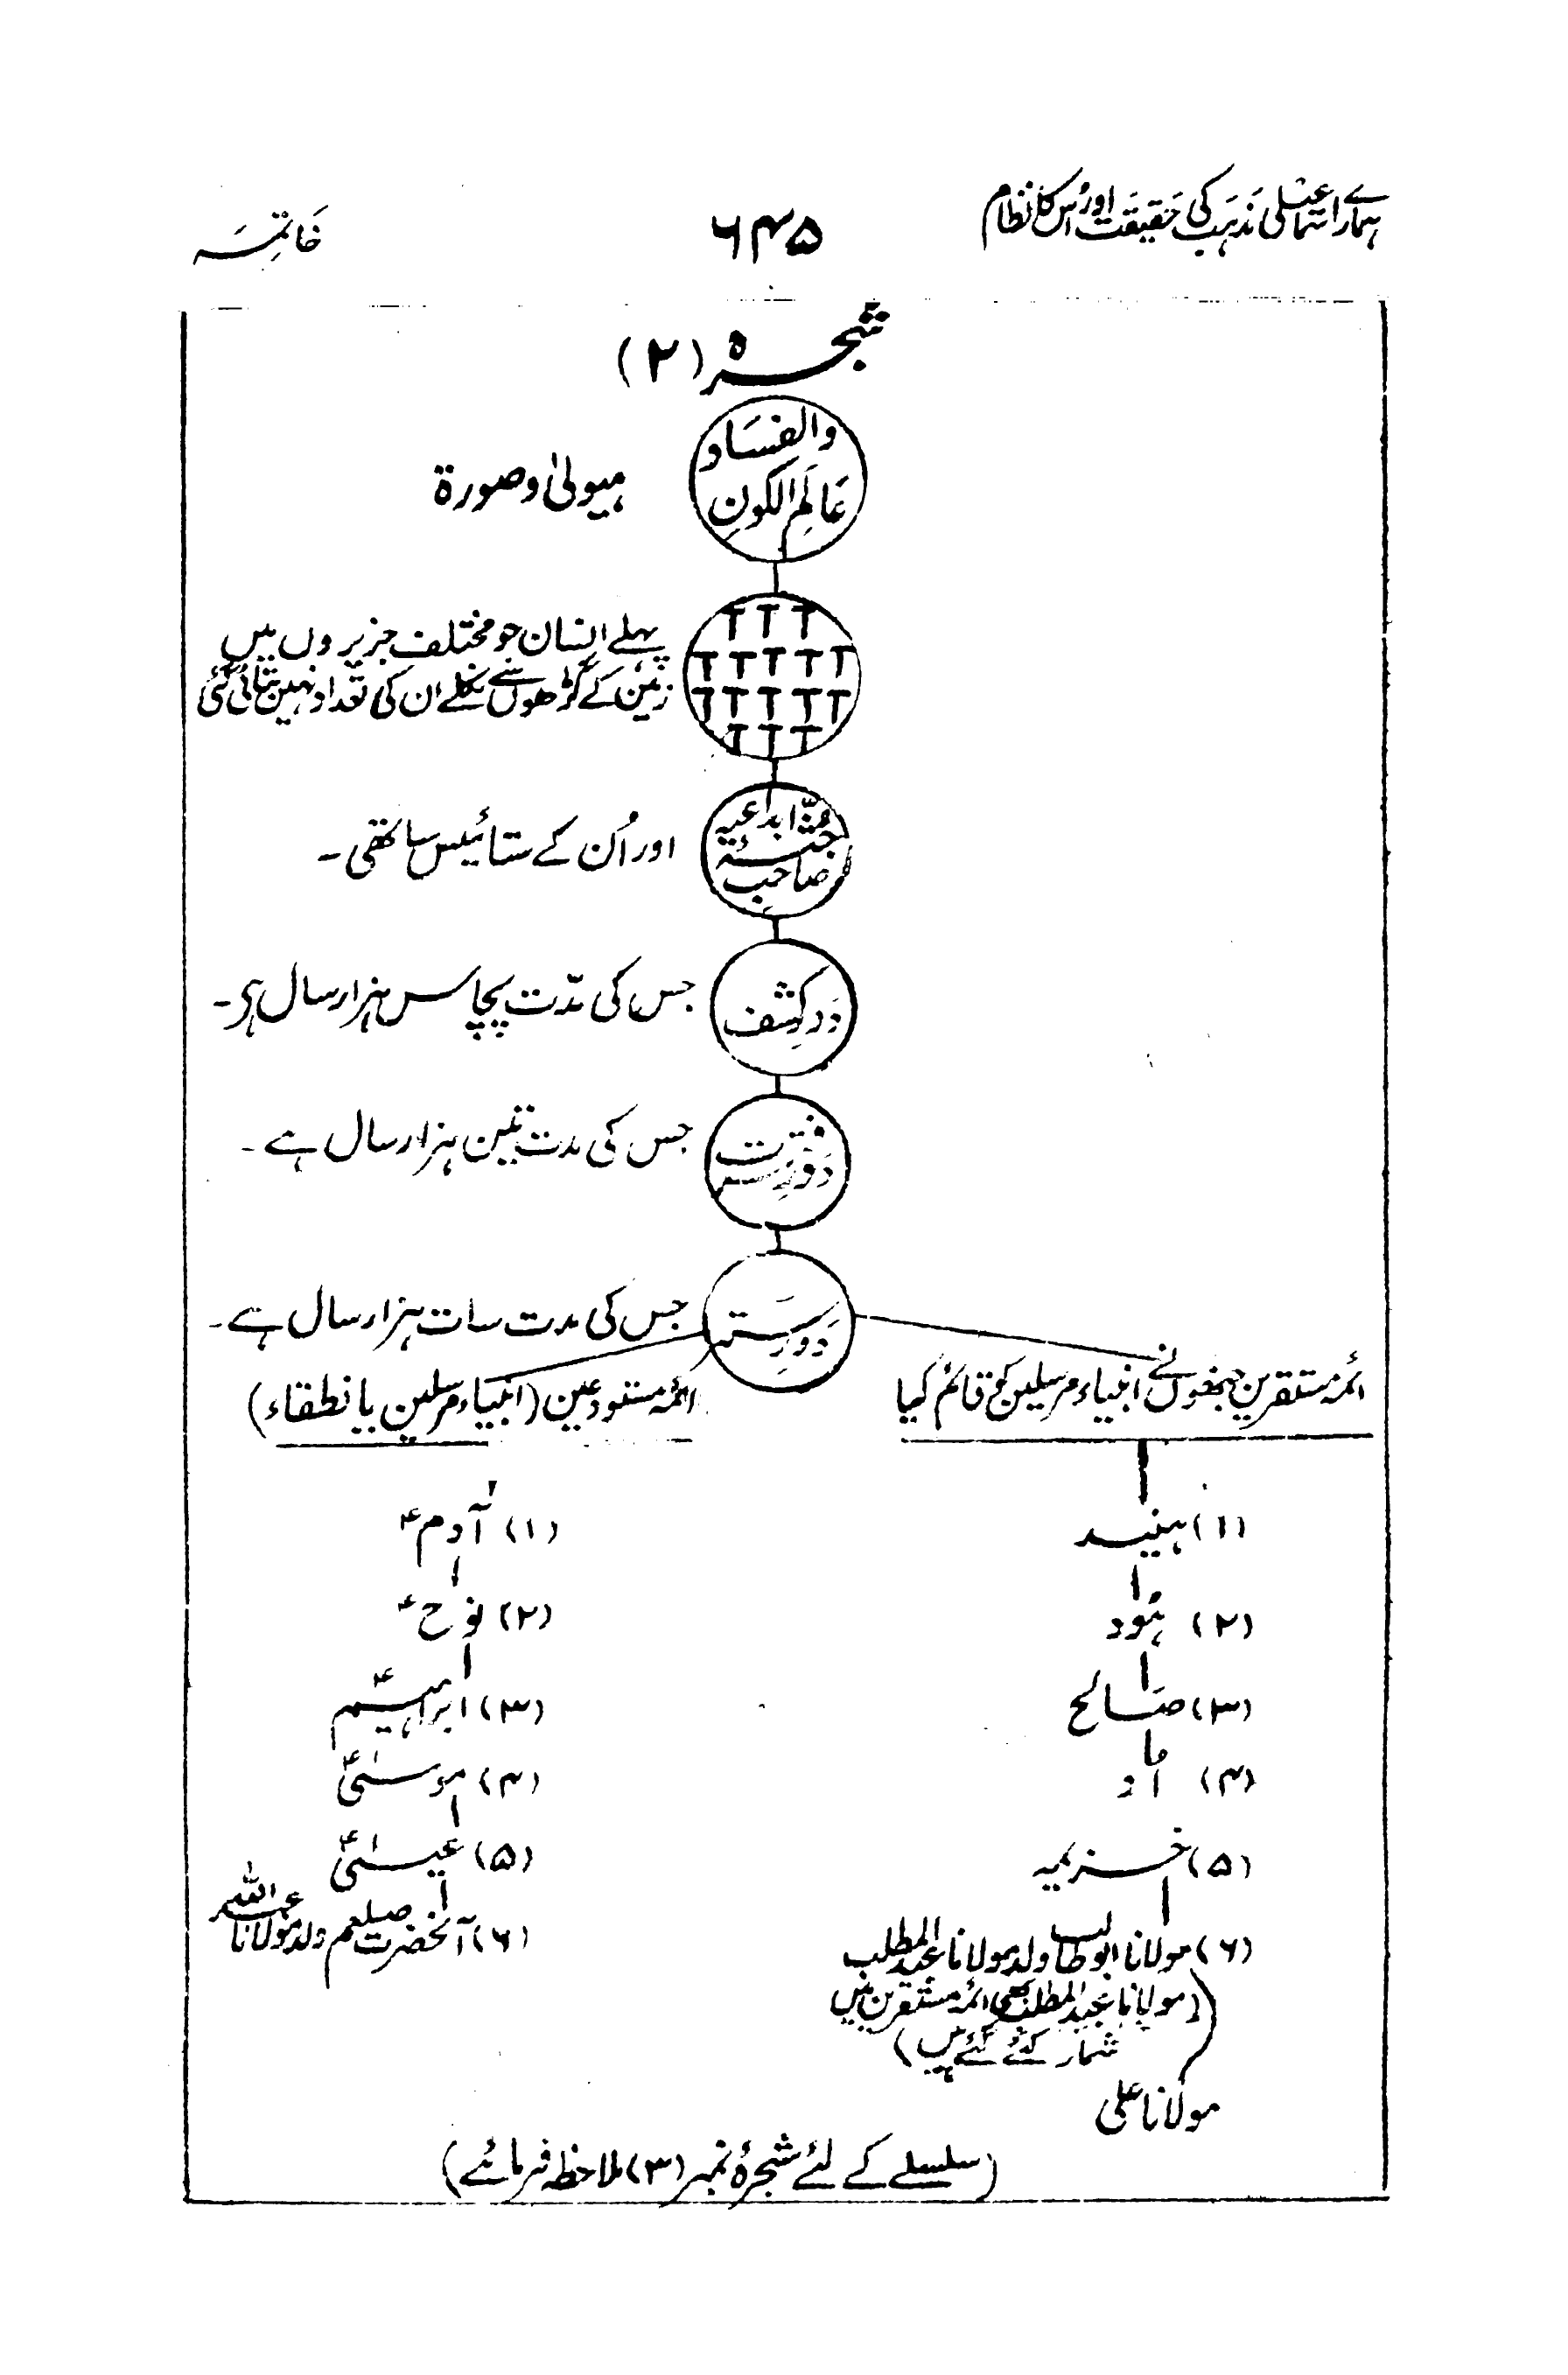 ہمارے اسماعیلی مذہب کی حقیقت اور اُس کا نظام
۶۴۵
خاتمہ
شجرہ (۲)
عالم الکون
والفساد
ہیولیٰ و صورۃ
T T T
T T T T T
T T T T T
T T T
پہلے انسان جو مختلف جزیروں میں
زمین کے گڑھوں سے نکلے ان کی تعداد نہیں بتائی گئی
صاحب
جثۂ
ابداعیہ
اور اُن کے ستائیس ساتھی۔
دور کشف
جس کی مدّت پچاس ہزار سال ہی۔
دور فترت
جس کی مدت تین ہزار سال ہے۔
دور ستر
جس کی مدت سات ہزار سال ہے۔
ائمہ مستقرین جنھوں نے انبیاء مرسلین کو قائم کیا
ائمہ مستودعین (انبیاء مرسلین یا نطقاء)
(۱) ہنید
(۲) ہُود
(۳) صالح
(۴) اُد
(۵) خزیمیہ
(۶) مولانا ابو طالب ولد مولانا عبد المطلب
(مولانا عبد المطلب بھی ائمہ مستقرین میں
شمار کئے گئے ہیں)
مولانا علی
(۱) آدم ؑ
(۲) نوح ؑ
(۳) ابراہیم ؑ
(۴) موسیٰ ؑ
(۵) عیسیٰ ؑ
(۶) آنحضرت صلعم ولد مولانا عبد اللہ
(سلسلے کے لئے شجرۂ نمبر (۳) ملاحظہ فرمائے)